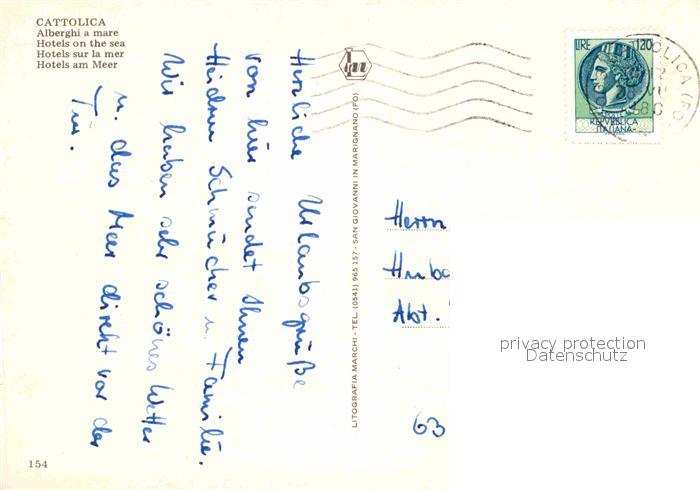 CATTOLICA
Alberghi a mare
Hotels on the sea
Hotels sur la mer
Hotels am Meer
Herzliche Urlaubsgrüße
von hier sendet Ihnen
Heidrun Schmücher u. Familie.
Wir haben sehr schönes Wetter
u. das Meer direkt vor der
Tür.
LITOGRAFIA MARCHI - TEL. (0541) 965 157 - SAN GIOVANNI IN MARIGNANO (FO)
LIRE 120
REPVBBLICA
ITALIANA
OLICA (FO)
Herrn
Abt.
63
privacy protection
Datenschutz
154